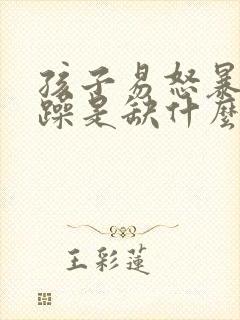 孩子易怒暴
躁是缺什麼
王彩蓮